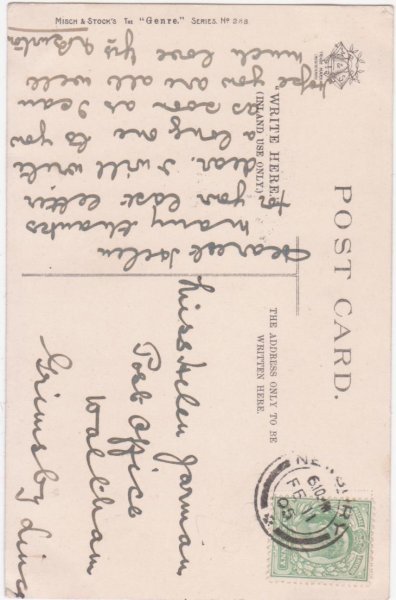 MISCH & STOCK'S THE "GENRE." SERIES. Nº 268.
POST CARD.
"WRITE HERE."
(INLAND USE ONLY.)
THE ADDRESS ONLY TO BE
WRITTEN HERE.
Dearest Helen
many thanks
for your last letter
dear. I will write
a long one to you
as soon as I can
hope you are all well
much love yrs
Miss Helen Jarman
Post Office
Waltham
Grimsby Lincs
FE 11
05